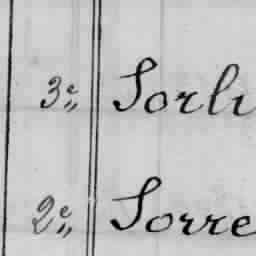 3e,, Sorli
2e,, Sorre